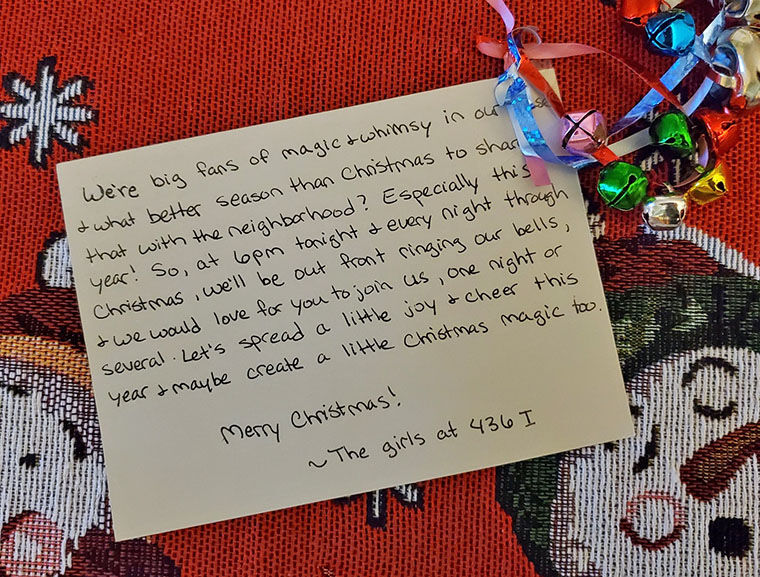 We're big fans of magic & whimsy in our
& what better season than Christmas to share
that with the neighborhood? Especially this
year! So, at 6pm tonight & every night through
Christmas, we'll be out front ringing our bells,
& we would love for you to join us, one night or
several. Let's spread a little joy & cheer this
year & maybe create a little Christmas magic too.
Merry Christmas!
~The girls at 436 I